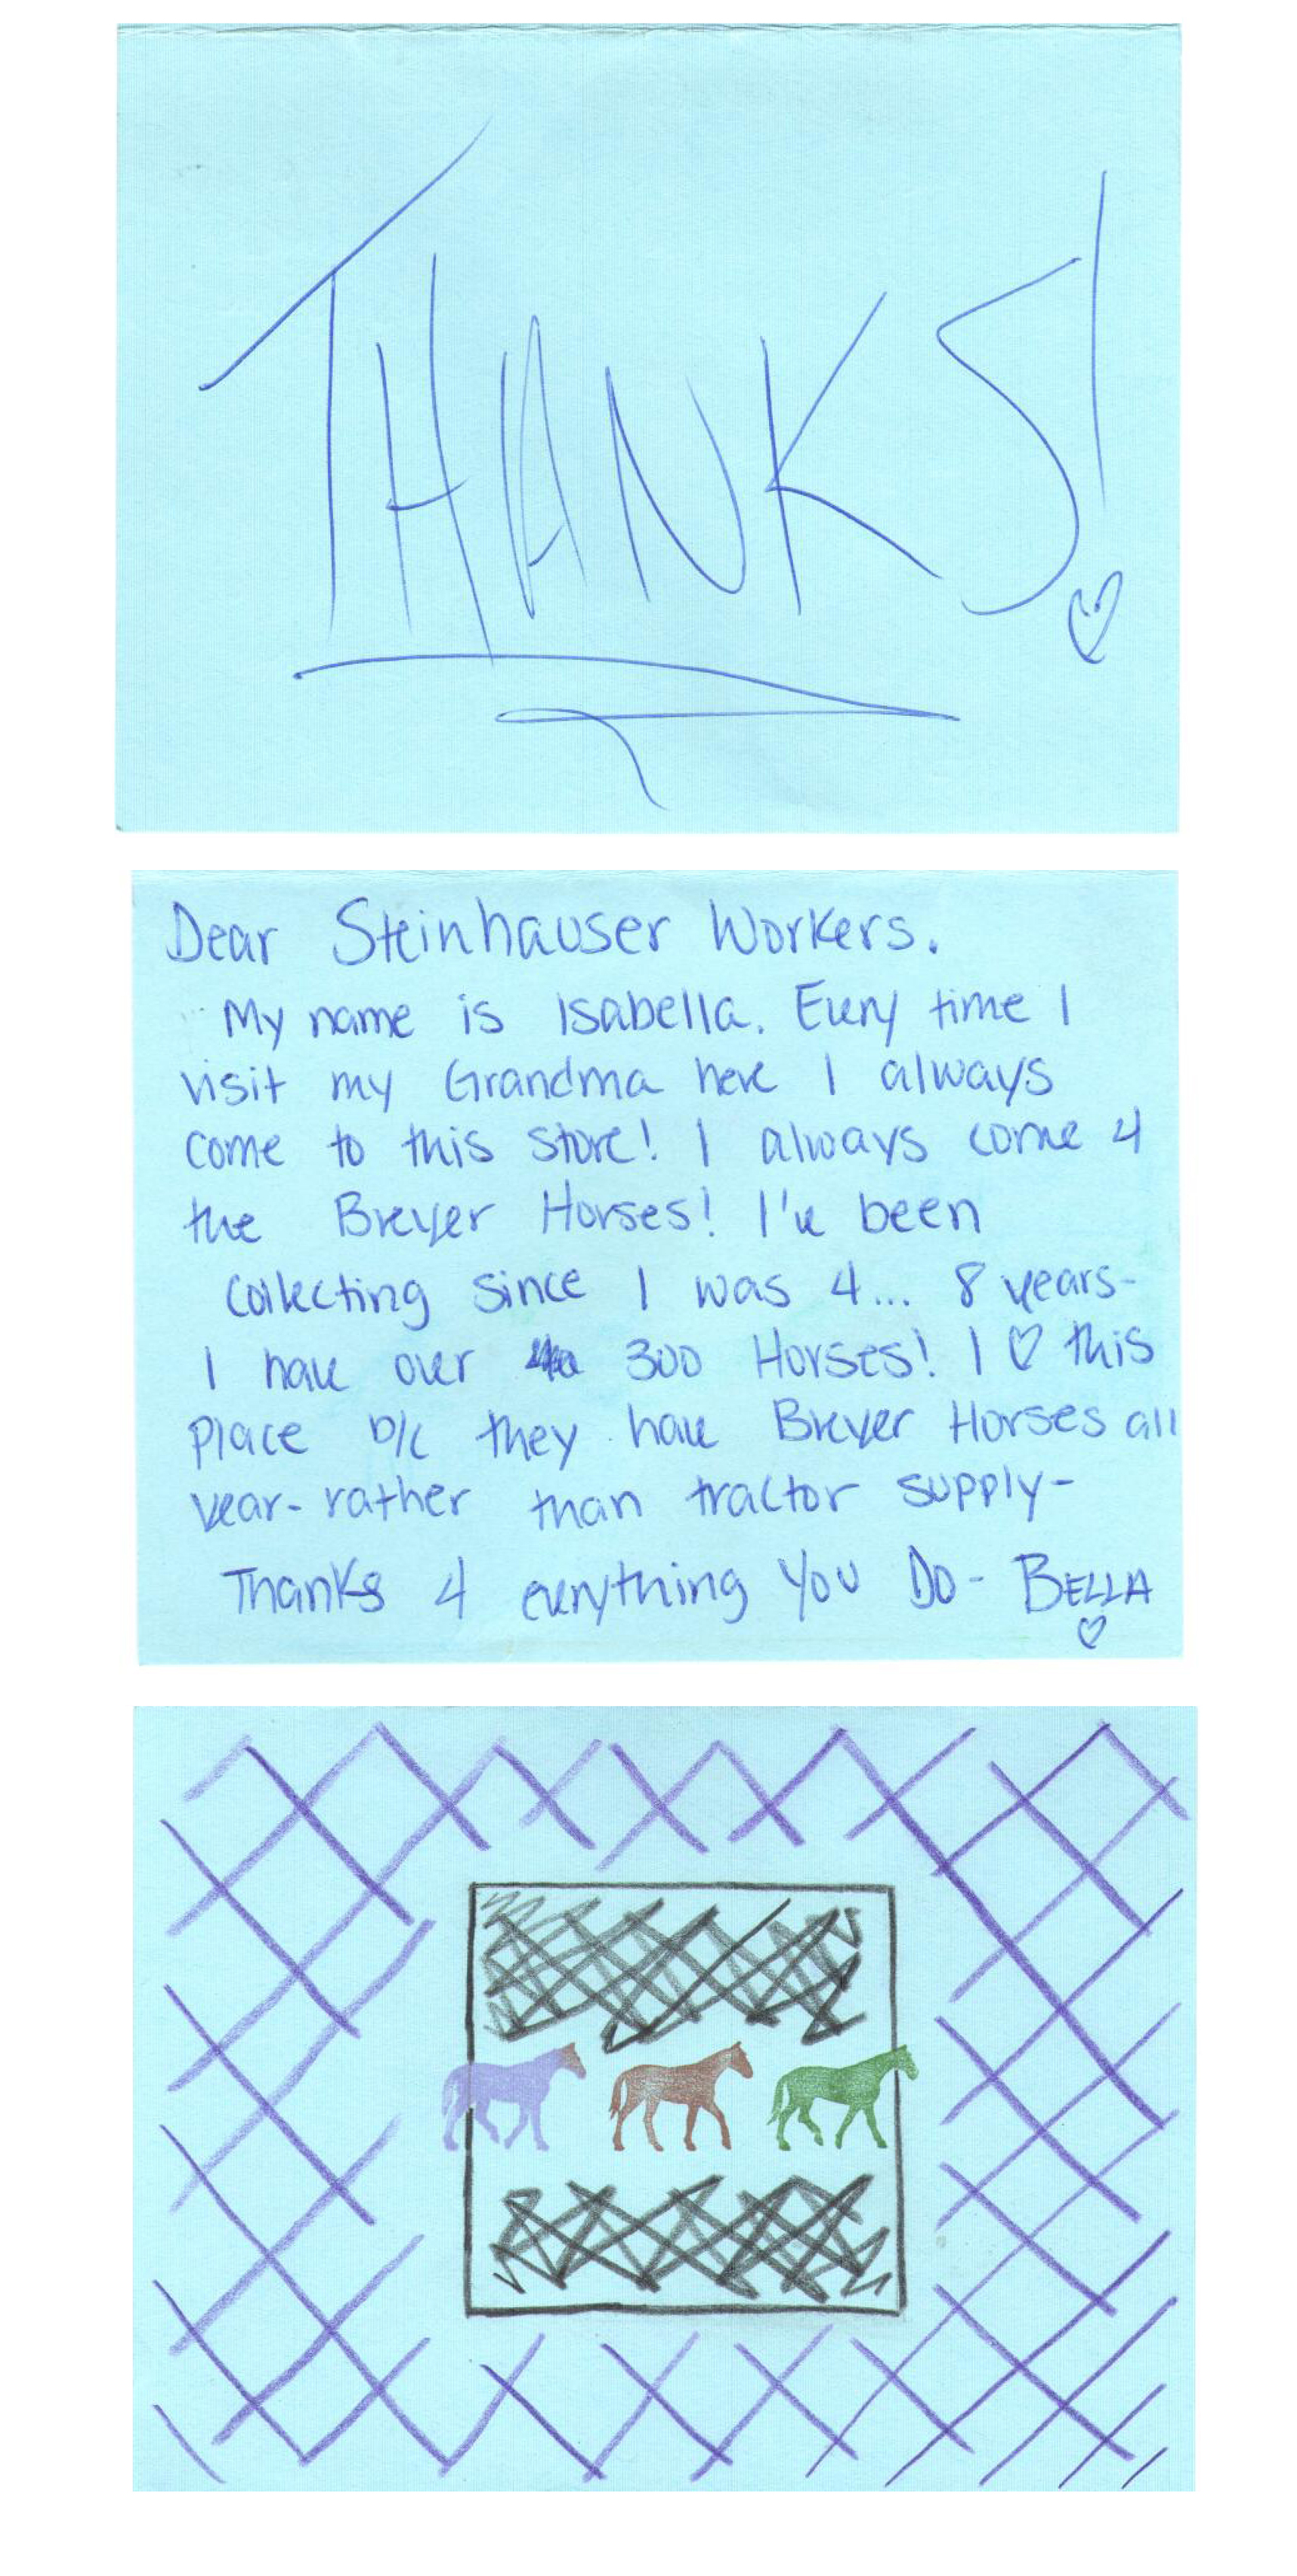 THANKS!
Dear Steinhauser Workers.
My name is Isabella. Every time I
visit my Grandma here I always
come to this store! I always come 4
the Breyer Horses! I've been
collecting since I was 4... 8 years-
I have over 300 Horses! I ♡ this
place b/c they have Breyer Horses all
year- rather than tractor supply-
Thanks 4 everything You Do- BELLA
♡